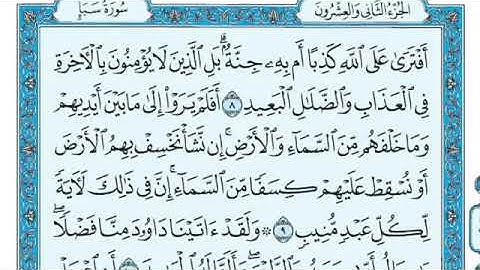 الجزء الثاني والعشرون سورة سبإ
أَفْتَرَىٰ عَلَى ٱللَّهِ كَذِبًا أَم بِهِۦ جِنَّةٌۢ ۗ بَلِ ٱلَّذِينَ لَا يُؤْمِنُونَ بِٱلْـَٔاخِرَةِ
فِى ٱلْعَذَابِ وَٱلضَّلَـٰلِ ٱلْبَعِيدِ ٨ أَفَلَمْ يَرَوْا۟ إِلَىٰ مَا بَيْنَ أَيْدِيهِمْ
وَمَا خَلْفَهُم مِّنَ ٱلسَّمَآءِ وَٱلْأَرْضِ ۚ إِن نَّشَأْ نَخْسِفْ بِهِمُ ٱلْأَرْضَ
أَوْ نُسْقِطْ عَلَيْهِمْ كِسَفًا مِّنَ ٱلسَّمَآءِ ۚ إِنَّ فِى ذَٰلِكَ لَـَٔايَةً
لِّكُلِّ عَبْدٍ مُّنِيبٍ ٩ ۞ وَلَقَدْ ءَاتَيْنَا دَاوُۥدَ مِنَّا فَضْلًا ۖ